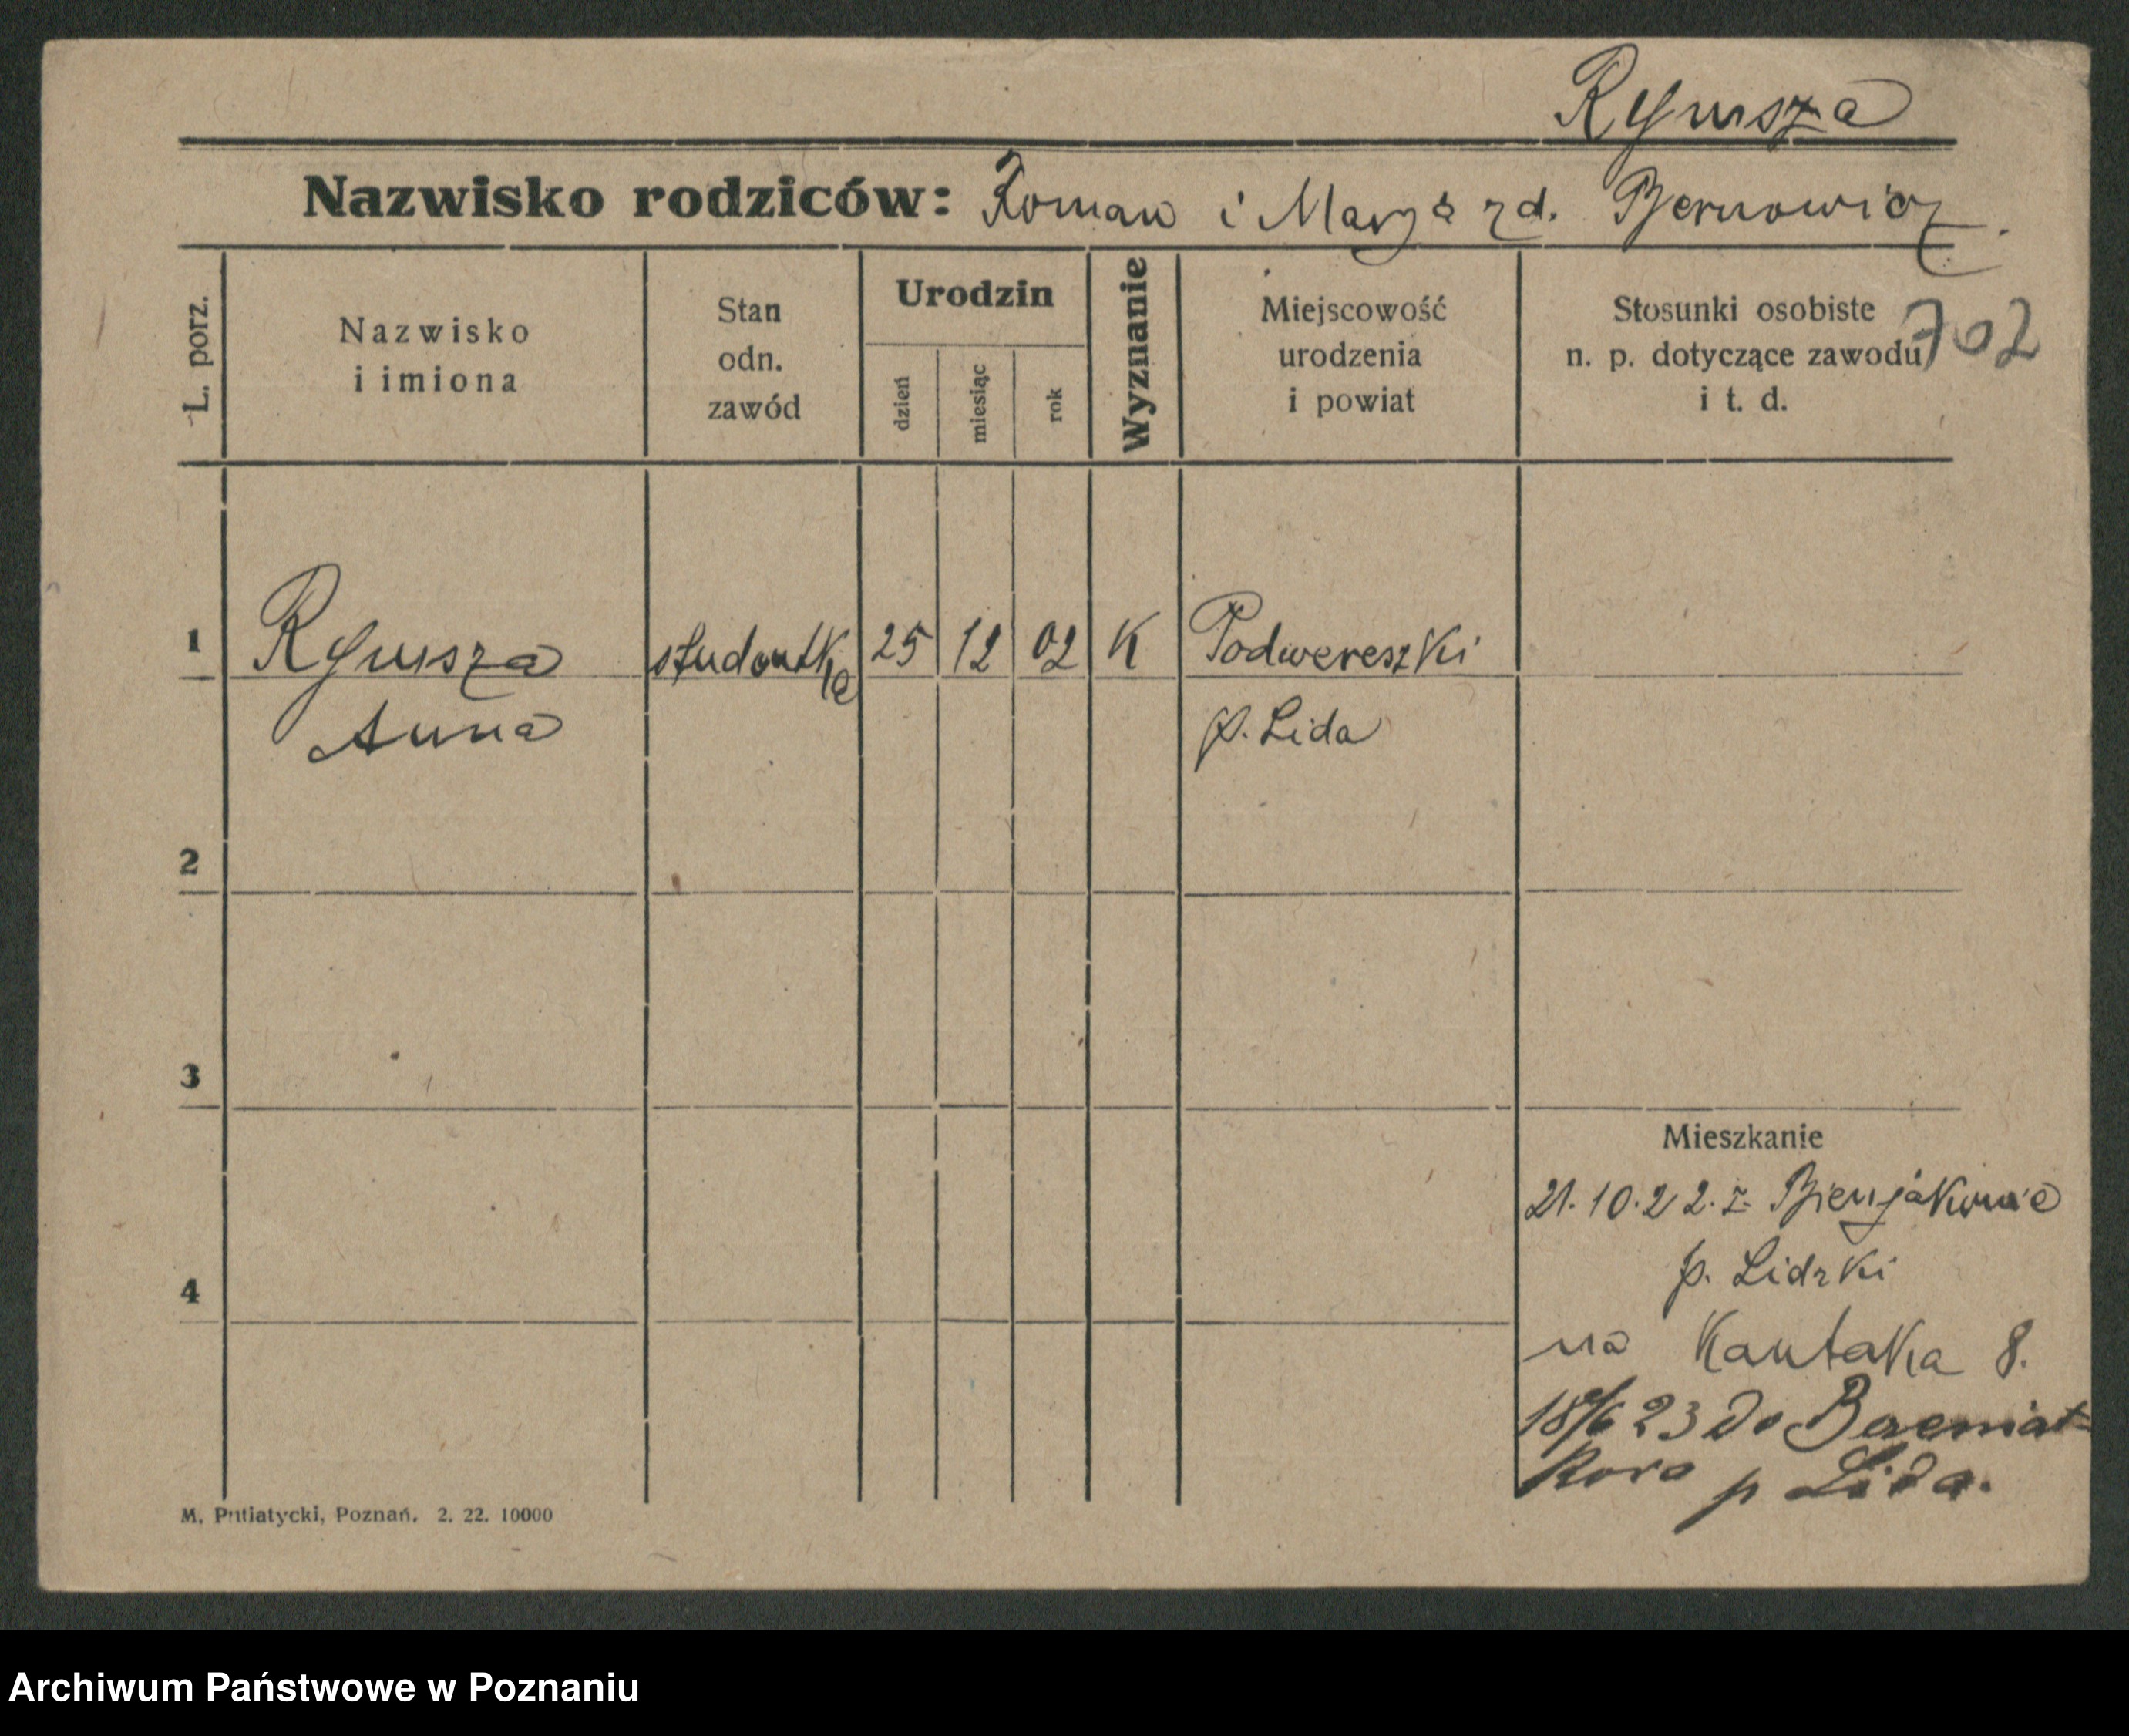 Rymsza
Nazwisko rodziców: Roman i Marya zd. Bernowicz.
L. porz.
Nazwisko
i imiona
Stan
odn.
zawód
Urodzin
dzień
miesiąc
rok
Wyznanie
Miejscowość
urodzenia
i powiat
Stosunki osobiste
n. p. dotyczące zawodu
i t. d.
702
1 Rymsza studentka 25 12 02 K Podwereszki
Anna p. Lida
2
3
Mieszkanie
21.10.22. z Bieniakonie
p. Lidzki
4
na Kantaka 8.
18/6 23 do
p Lida.
M. Putiatycki, Poznań. 2. 22. 10000
Archiwum Państwowe w Poznaniu